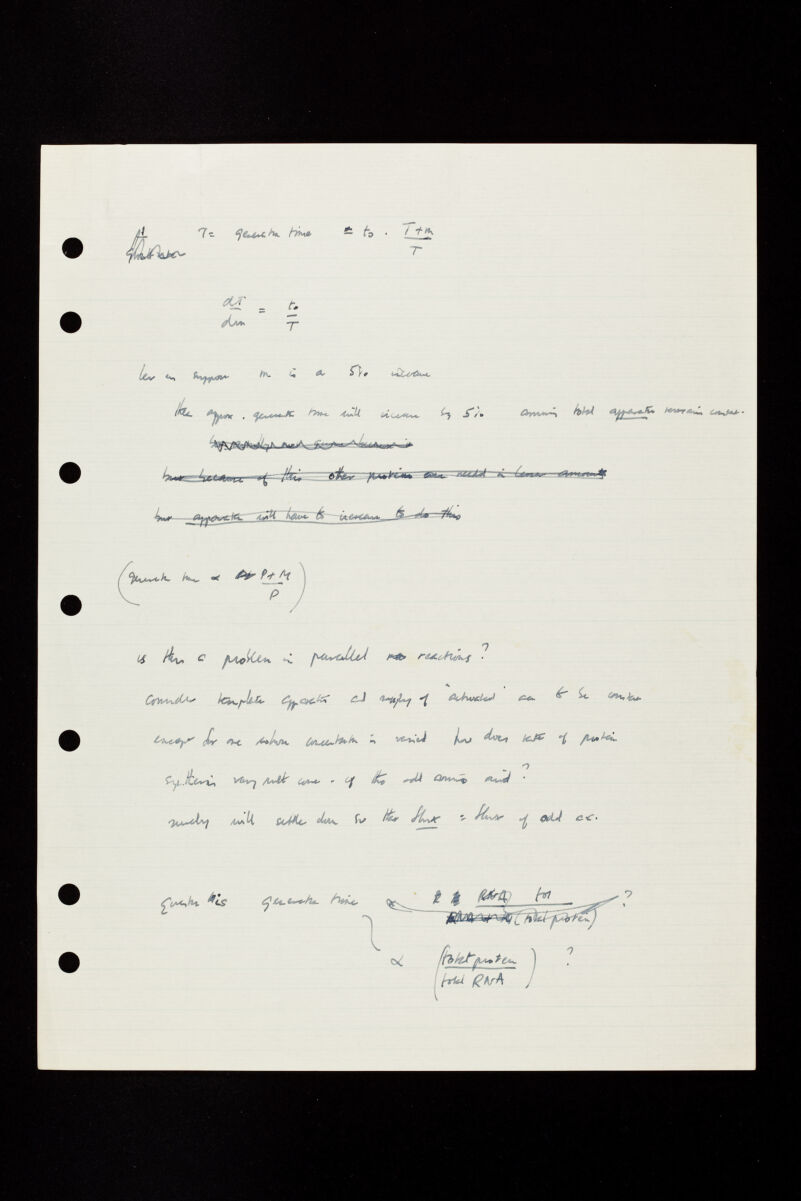 T = generation time = to . T+m / T
dT / dm = to / T
Let us suppose m is a 5% increase
then approx. generation time will increase by 5% assuming total apparatus remains constant.
but because of this other proteins are need in lesser amounts
but apparatus will have to increase to do this
(generation time ∝ P+M / P)
is this a problem in parallel reactions?
consider template apparatus and supply of "activated" aa to be constant
except for one whose concentration is varied how does rate of protein
synthesis vary with conc. of the odd amino acid?
surely will settle down so that flux = flux of odd aa.
Question is generation time ∝ RNA tot / (total protein) ?
∝ (total protein / total RNA) ?